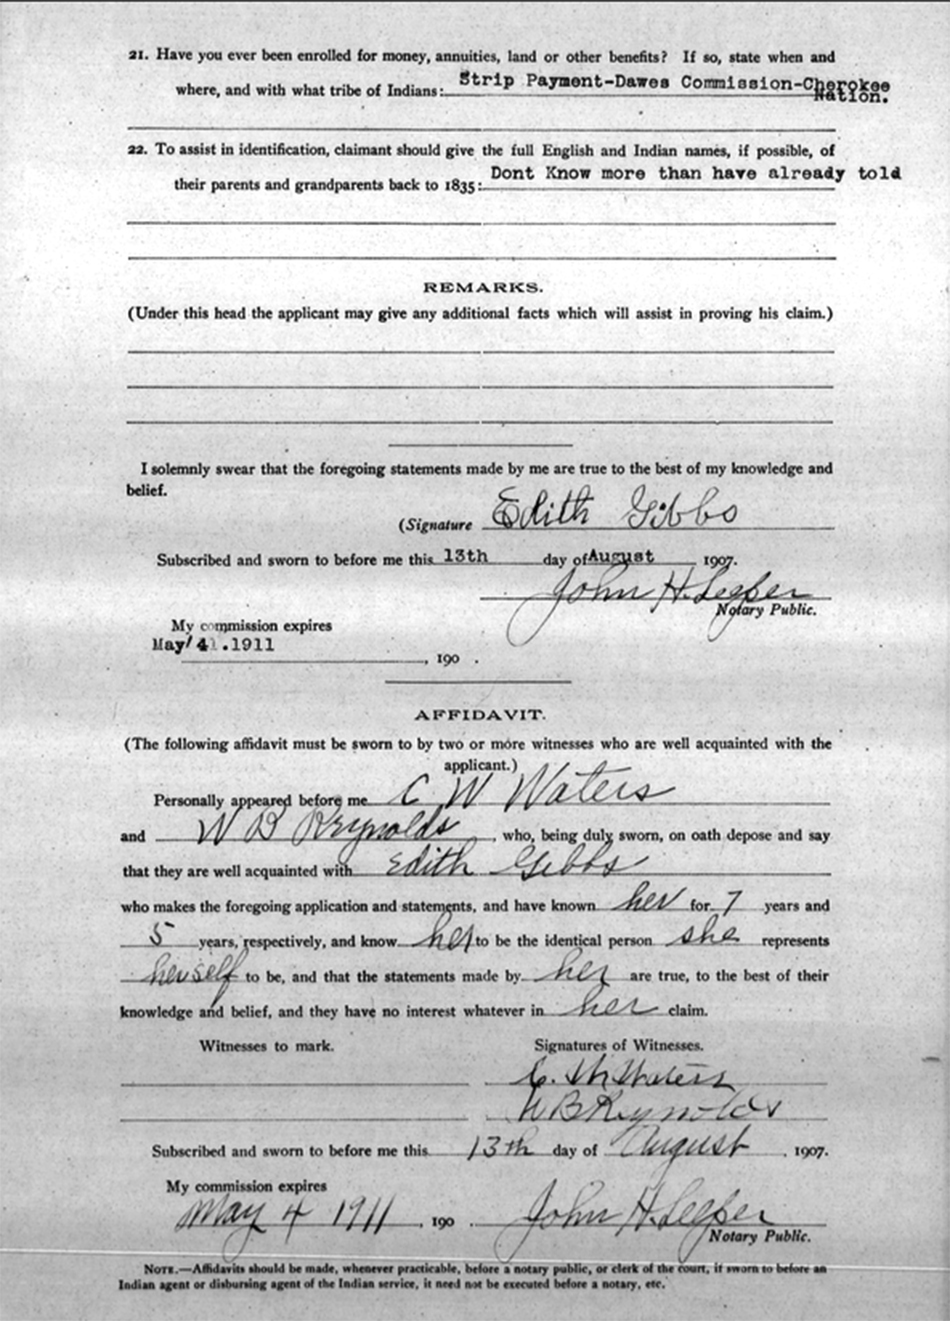 21. Have you ever been enrolled for money, annuities, land or other benefits? If so, state when and
where, and with what tribe of Indians: Strip Payment-Dawes Commission-Cherokee
Nation.
22. To assist in identification, claimant should give the full English and Indian names, if possible, of
their parents and grandparents back to 1835: Dont Know more than have already told
REMARKS.
(Under this head the applicant may give any additional facts which will assist in proving his claim.)
I solemnly swear that the foregoing statements made by me are true to the best of my knowledge and
belief.
(Signature Edith Gibbs
Subscribed and sworn to before me this 13th day of August 1907.
John H. Leeper
Notary Public.
My commission expires
May 4 .1911
, 190 .
AFFIDAVIT.
(The following affidavit must be sworn to by two or more witnesses who are well acquainted with the
applicant.)
Personally appeared before me C W Waters
and W B Reynolds, who, being duly sworn, on oath depose and say
that they are well acquainted with Edith Gibbs
who makes the foregoing application and statements, and have known her for 7 years and
5 years, respectively, and know her to be the identical person she represents
herself to be, and that the statements made by her are true, to the best of their
knowledge and belief, and they have no interest whatever in her claim.
Witnesses to mark. Signatures of Witnesses.
C. W. Waters
W B Reynolds
Subscribed and sworn to before me this 13th day of August, 1907.
My commission expires
May 4 1911, 190 . John H. Leeper
Notary Public.
NOTE.—Affidavits should be made, whenever practicable, before a notary public, or clerk of the court, if sworn to before an
Indian agent or disbursing agent of the Indian service, it need not be executed before a notary, etc.